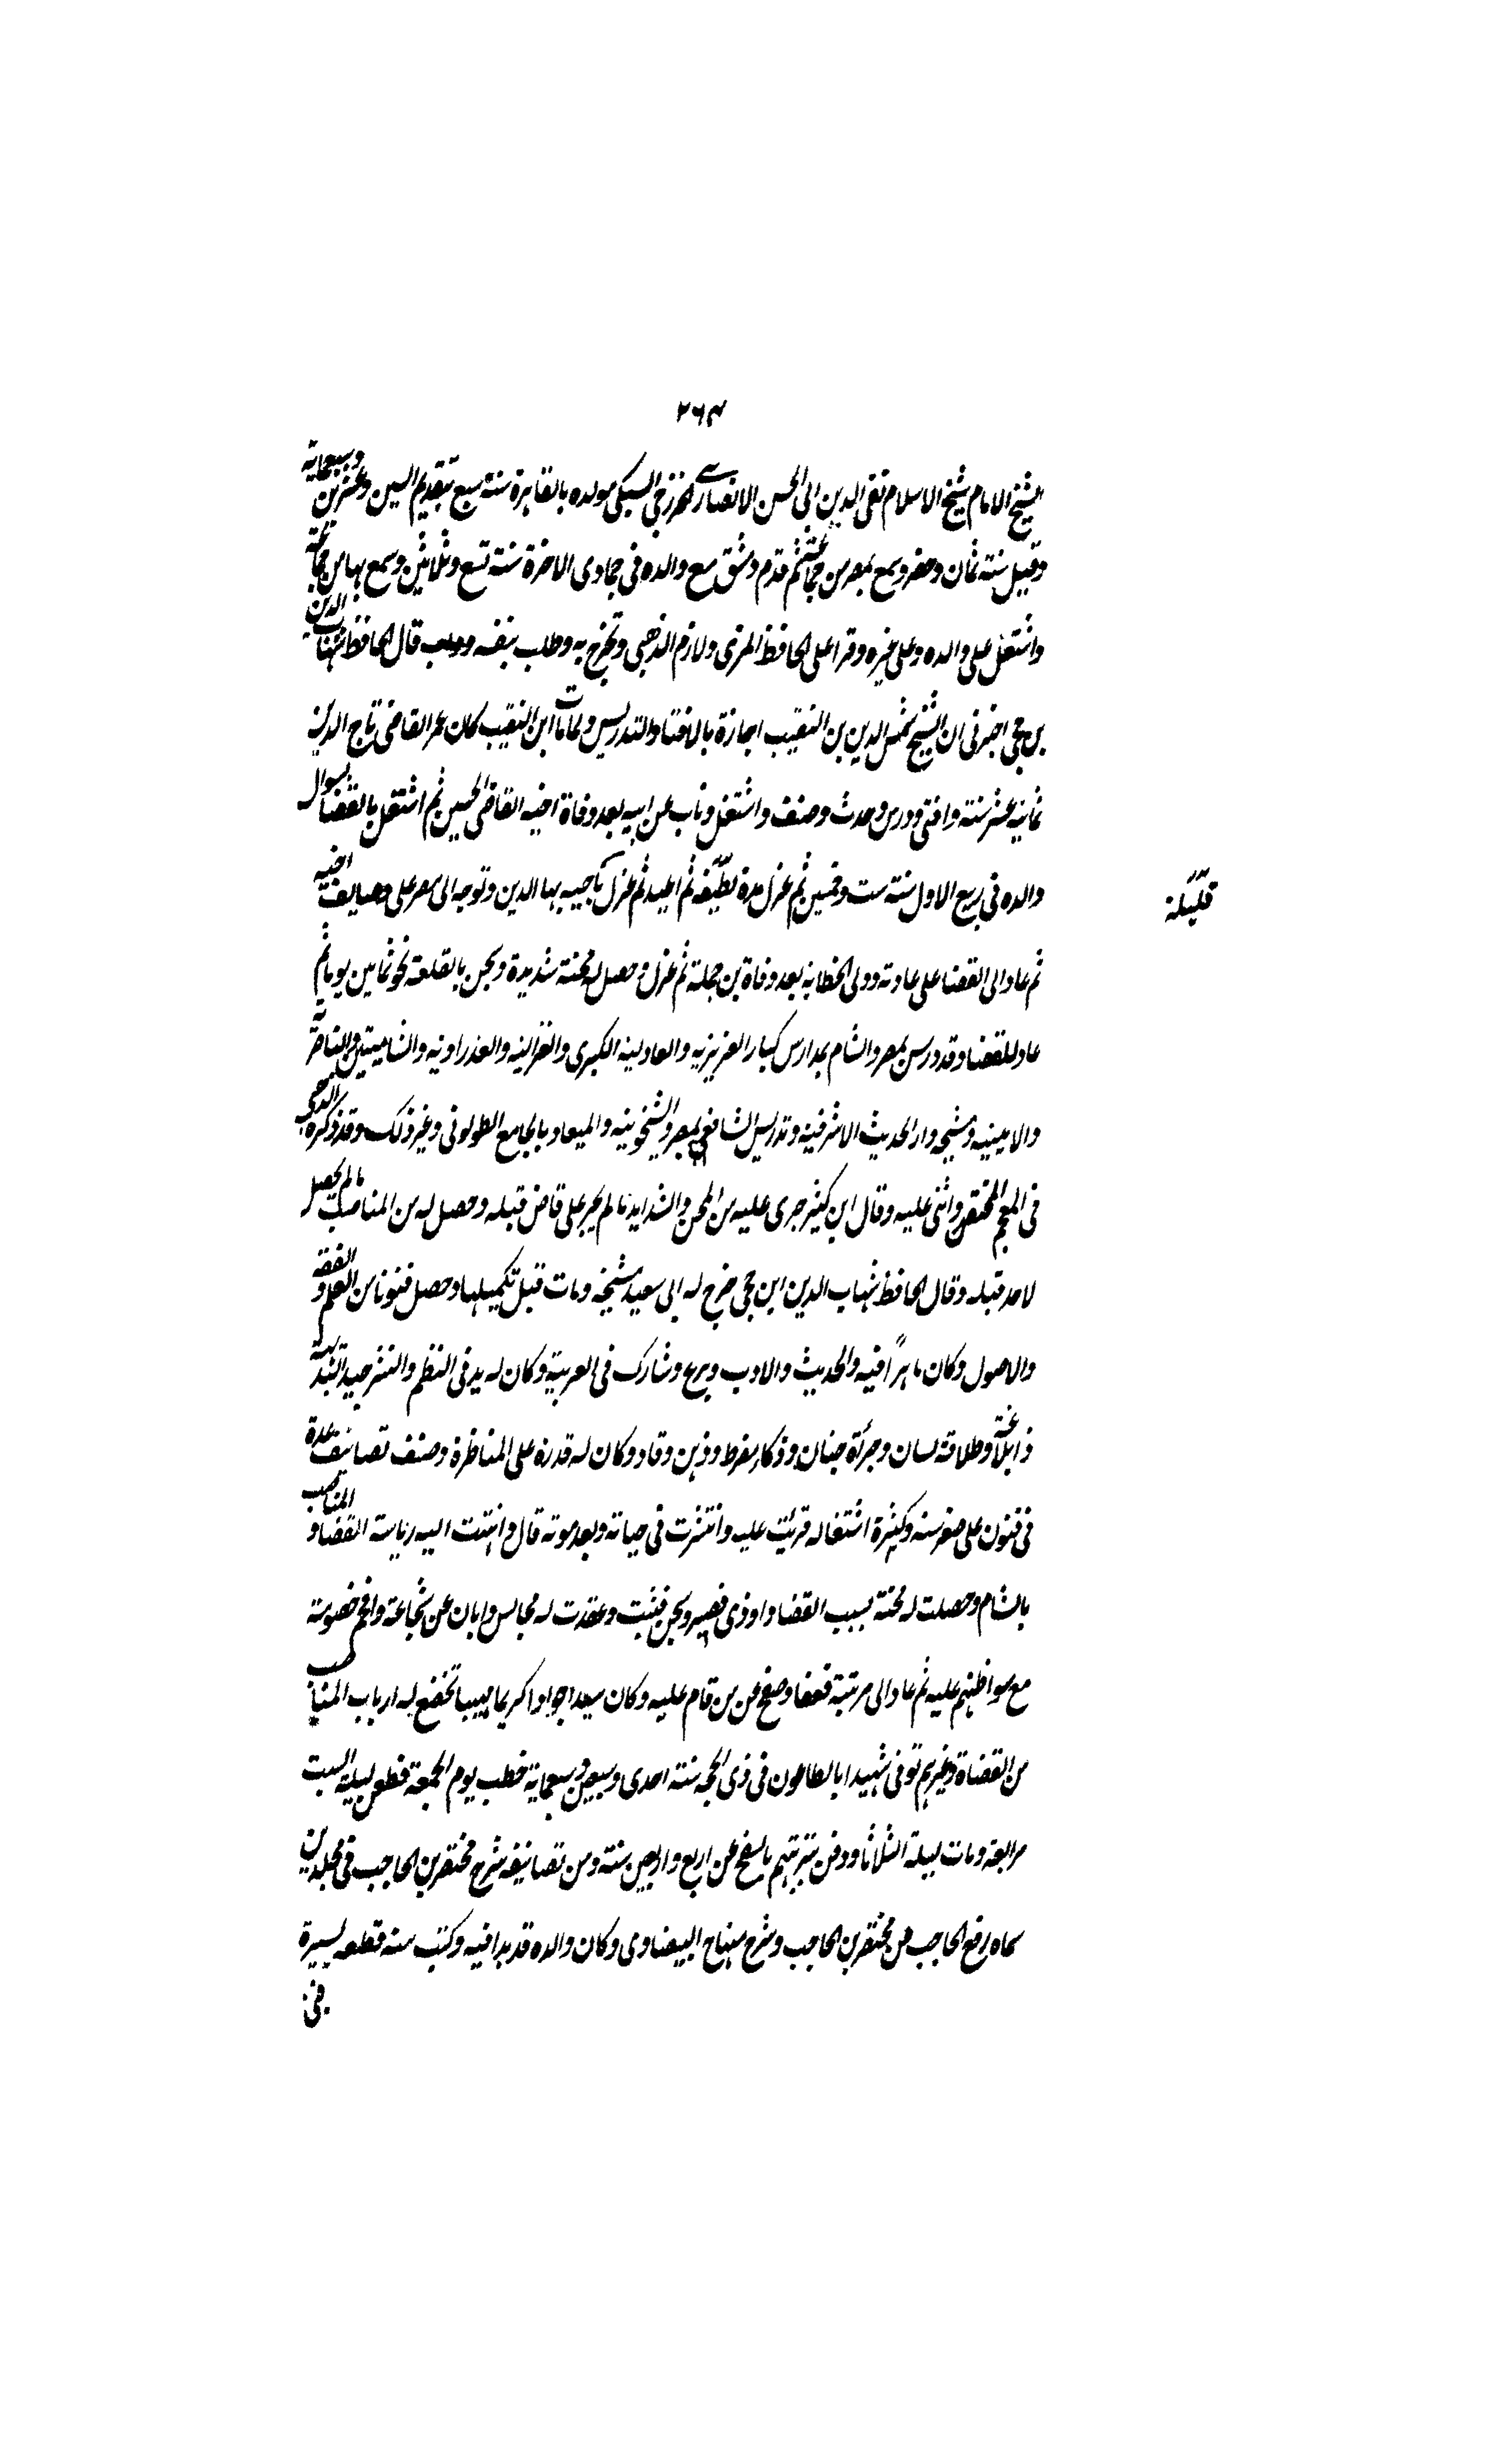 ۲۶۴
الشيخ الامام شيخ الاسلام تقى الدين ابى الحسن الانصارى الخزرجى السبكى مولده بالقاهرة سنة سبع بتقديم السين وعشرين وسبعماية
وقيل سنة ثمان وحضر وسمع بمصر من جماعة ثم قدم دمشق مع والده فى جمادى الاخرة سنة تسع وثلاثين وسمع بها من جماعة
واشتغل على والده وعلى غيره وقرا على الحافظ المزى ولازم الذهبى وتخرج به وطلب بنفسه وداب قال الحافظ شهاب الدين
بن حجى اخبرنى ان الشيخ شمس الدين بن النقيب اجازة بالافتاء والتدريس ولما مات ابن النقيب كان عمر القاضى تاج الدين
ثمانية عشر سنة وافتى ودرس وحدث وصنف واشتغل وناب عن ابيه بعد وفاة اخيه القاضى الحسين ثم اشتغل بالقضا بسوال
والده فى ربيع الاول سنة ست وخمسين ثم عزل مدة لطيفة ثم اعيد ثم عزل باخيه بها الدين وتوجه الى مصر على وصايف اخيه
قليلة
ثم عاد الى القضا على عادته وولى الخطابة بعد وفاة بن جملة ثم عزل وحصل له محنة شديدة وسجن بالقلعة نحو ثمانين يوما ثم
عاد للقضا وقد درس بمصر والشام بمدارس كبار العزيزيه والعادلية الكبرى والغزاليه والعذراوية والشاميتين والناصرية
والامينيه ومشيخه دار الحديث الاشرفية وتدريس الشافعى بمصر والشيخونيه والميعاد بالجامع الطولونى وغير ذلك وقد ذكره الذهبى
فى المعجم المختص واثنى عليه وقال ابن كثير جرى عليه من المحن والشدايد ما لم يجر على قاض قبله وحصل له من المناصب ما لم يحصل
لاحد قبله وقال الحافظ شهاب الدين ابن حجى خرج له ابى سعيد مشيخة ومات قبل تكميلها وحصل فنونا من العلم والفقه
والاصول وكان ماهرًا فيه والحديث والادب وبرع وشارك فى العربية وكان له يد فى النظم والنثر جيد البديهة
ذا بلاغة وطلاقة لسان وجرأة جنان وذكاء مفرط وذهن وقاد وكان له قدرة على المناظرة وصنف تصانيف عدة
فى فنون على صغر سنه وكثرة اشتغاله قرئت عليه وانتشرت فى حياته وبعد موته قال وانتهت اليه رياسة القضا والمناصب
بالشام وحصلت له محنة بسبب القضا واوذى فصبر وسجن فثبت وعقدت له مجالس وابان عن شجاعة وافحم خصومة
مع تواطئهم عليه ثم عاد الى مرتبة فعفا وصفح عمن من قام عليه وكان سيدا جوادا كريما مهيبا تخضع له ارباب المناصب
من القضاة وغيرهم توفى شهيدا بالطاعون فى ذى الحجة سنة احدى وسبعين وسبعماية خطب يوم الجمعة فطعن ليلة السبت
رابعة ومات ليلة الثلاثا ودفن بتربتهم بالسفح عن اربع واربعين سنة ومن تصانيفه شرح مختصر بن الحاجب فى مجلدين
سماه رفع الحاجب عن مختصر بن الحاجب وشرح منهاج البيضاوى وكان والده قد بدا فيه وكتب منه قطعه يسيرة
فى